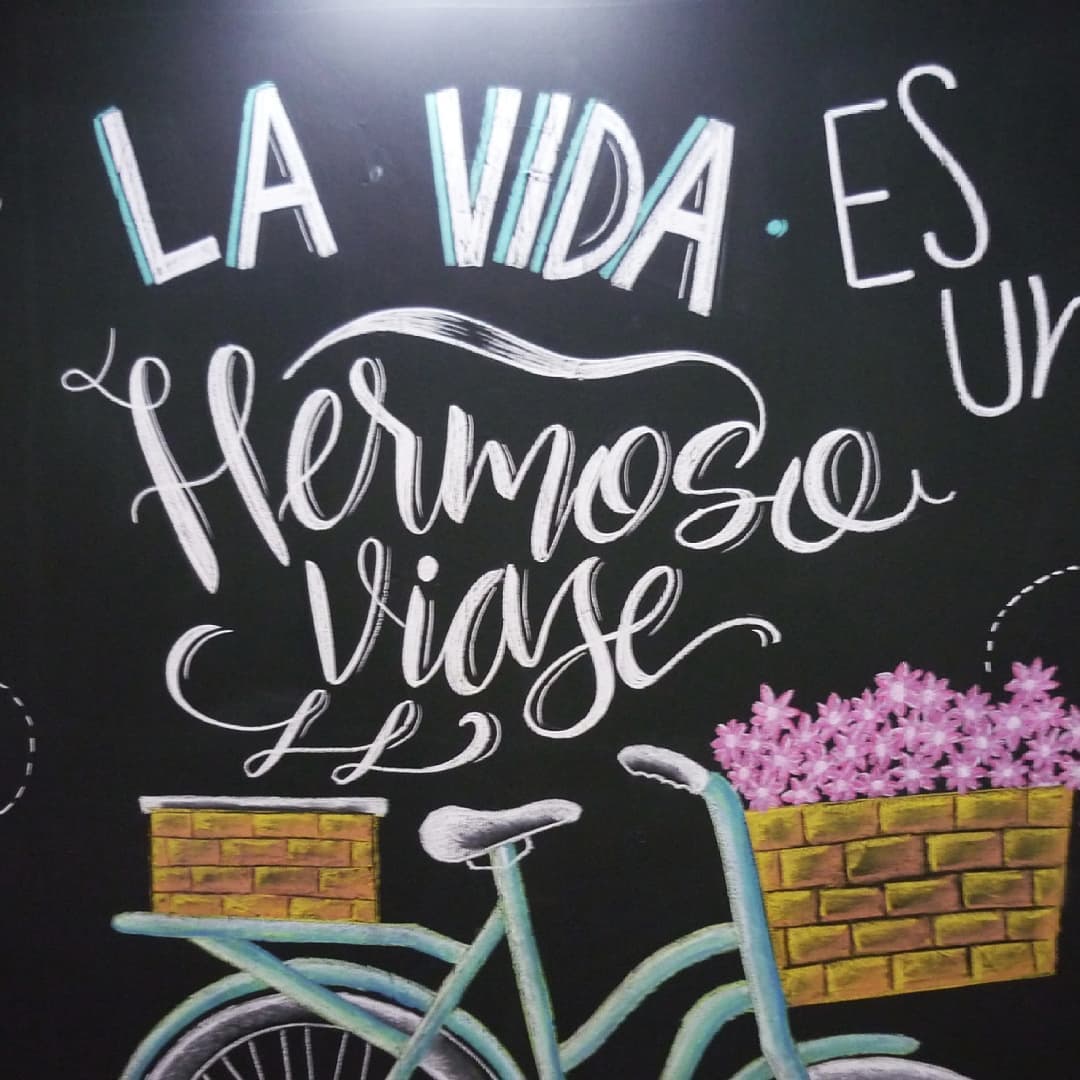 LA VIDA · ES
UN
Hermoso
viaje